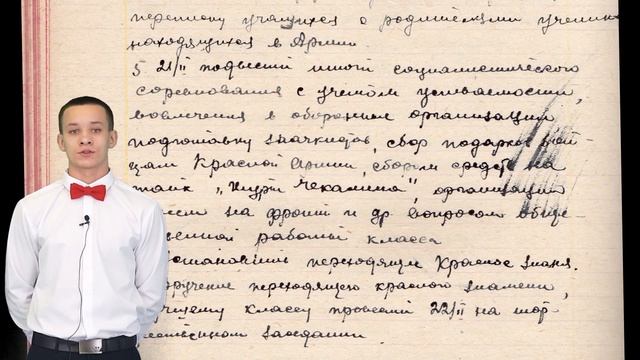 переписку учащихся с родителями учеников
находящихся в Армии.
5 21/II подвести итоги социалистического
соревнования с учетом успеваемости,
вовлечения в оборонные организации
подготовку значкистов, сбор подарков
цам Красной Армии, сборы средств на
танк „Шура Чекалина", организации
писем на фронт и др. вопросом обще-
венной работы класса
становить переходящее Красное знамя.
ручение переходящего красного знамени,
чшему классу провести 22/II на тор-
ественном заседании.